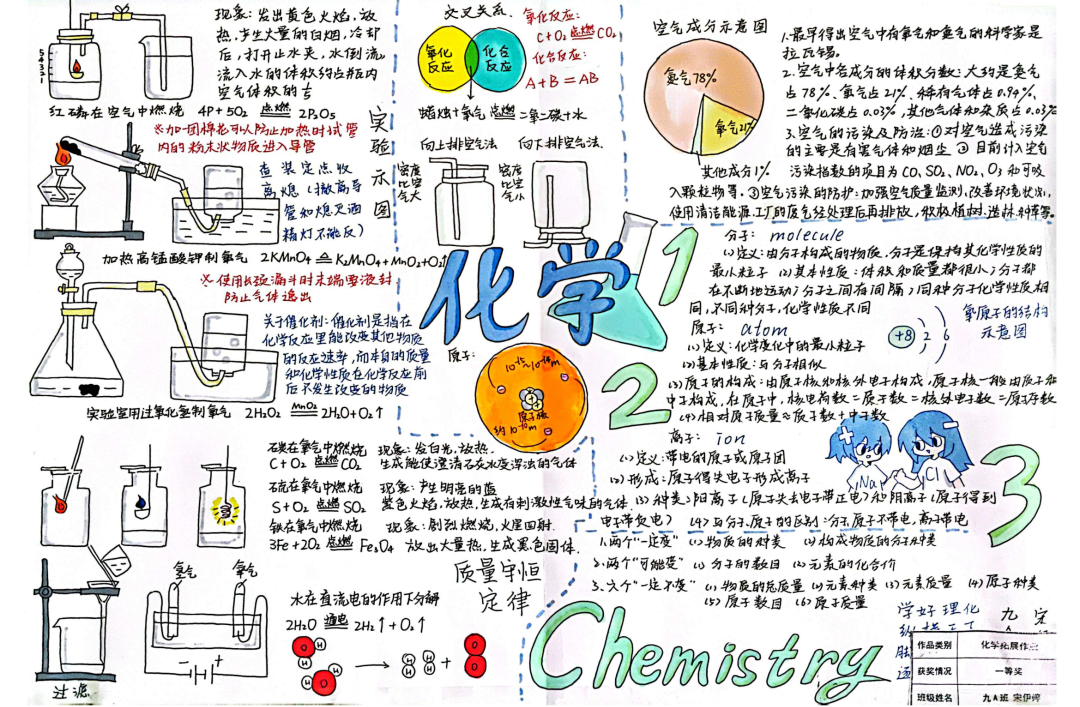 现象：发出黄色火焰，放
热，产生大量的白烟，冷却
后，打开止水夹，水倒流，
流入水的体积约占瓶内
空气体积的
5
4
3
2
1
红磷在空气中燃烧 4P+5O₂ 点燃 2P₂O₅
※加一团棉花可以防止加热时试管
内的粉末状物质进入导管
查 装 定 点 收
离 熄（撤离导
管和熄灭酒
精灯不能反）
加热高锰酸钾制氧气 2KMnO₄ ≜ K₂MnO₄+MnO₂+O₂↑
※使用长颈漏斗时末端要液封
防止气体逸出
关于催化剂：催化剂是指在
化学反应里能改变其他物质
的反应速率，而本身的质量
和化学性质在化学反应前
后不发生改变的物质
实验室用过氧化氢制氧气 2H₂O₂ MnO₂ 2H₂O+O₂↑
实验示意图
碳在氧气中燃烧 现象：发白光，放热，
C+O₂ 点燃 CO₂ 生成能使澄清石灰水变浑浊的气体
硫在氧气中燃烧 现象：产生明亮的蓝
S+O₂ 点燃 SO₂ 紫色火焰，放热，生成有刺激性气味的气体
铁在氧气中燃烧 现象：剧烈燃烧，火星四射，
3Fe+2O₂ 点燃 Fe₃O₄ 放出大量热，生成黑色固体
过滤
氢气 氧气
水在直流电的作用下分解
2H₂O 通电 2H₂↑+O₂↑
O H H H H O
H H H H + O O
质量守恒
定律
交叉关系
氧化反应：
C+O₂ 点燃 CO₂
化合反应：
A+B=AB
氧化反应
化合反应
蜡烛+氧气 点燃 二氧化碳+水
向上排空气法 向下排空气法
密度比空气大
密度比空气小
化学
原子：
10⁻¹⁵~10⁻¹⁴m
原子核
约10⁻¹⁰m
空气成分示意图
氮气78%
氧气21%
其他成分1%
1.最早得出空气中有氧和氮气的科学家是
拉瓦锡。
2.空气中各成分的体积分数：大约是氮气
占78%、氧气占21%、稀有气体占0.94%、
二氧化碳占0.03%，其他气体和杂质占0.03%
3.空气的污染及防治：①对空气造成污染
的主要是有害气体和烟尘 ②目前计入空气
污染指数的项目为CO、SO₂、NO₂、O₃和可吸
入颗粒物等，③空气污染的防护：加强空气质量监测，改善环境状况，
使用清洁能源，工厂的废气经处理后再排放，积极植树、造林、种草等。
1
分子：molecule
(1)定义：由分子构成的物质，分子是保持其化学性质的
最小粒子 (2)基本性质：体积和质量都很小；分子都
在不断地运动；分子之间有间隔；同种分子化学性质相
同，不同种分子，化学性质不同
原子：atom
(1)定义：化学变化中的最小粒子
(2)基本性质：与分子相似
(3)原子的构成：由原子核和核外电子构成，原子核一般由质子和
中子构成，在原子中，核电荷数=质子数=核外电子数=原子序数
(4)相对原子质量≈质子数+中子数
+8 2 6
氧原子的结构
示意图
2
离子：ion
(1)定义：带电的原子或原子团
(2)形成：原子得失电子形成离子
(3)种类：阳离子（原子失去电子带正电）和阴离子（原子得到
电子带负电） (4)与分子、原子的区别：分子、原子不带电，离子带电
Na
Cl
3
1.两个“一定变” (1)物质的种类 (2)构成物质的分子种类
2.两个“可能变” (1)分子的数目 (2)元素的化合价
3.六个“一定不变” (1)物质的总质量 (2)元素种类 (3)元素质量 (4)原子种类
(5)原子数目 (6)原子质量
Chemistry
学好理化
九
作品类别 化学拓展作业
获奖情况 一等奖
班级姓名 九A班 宋伊婷